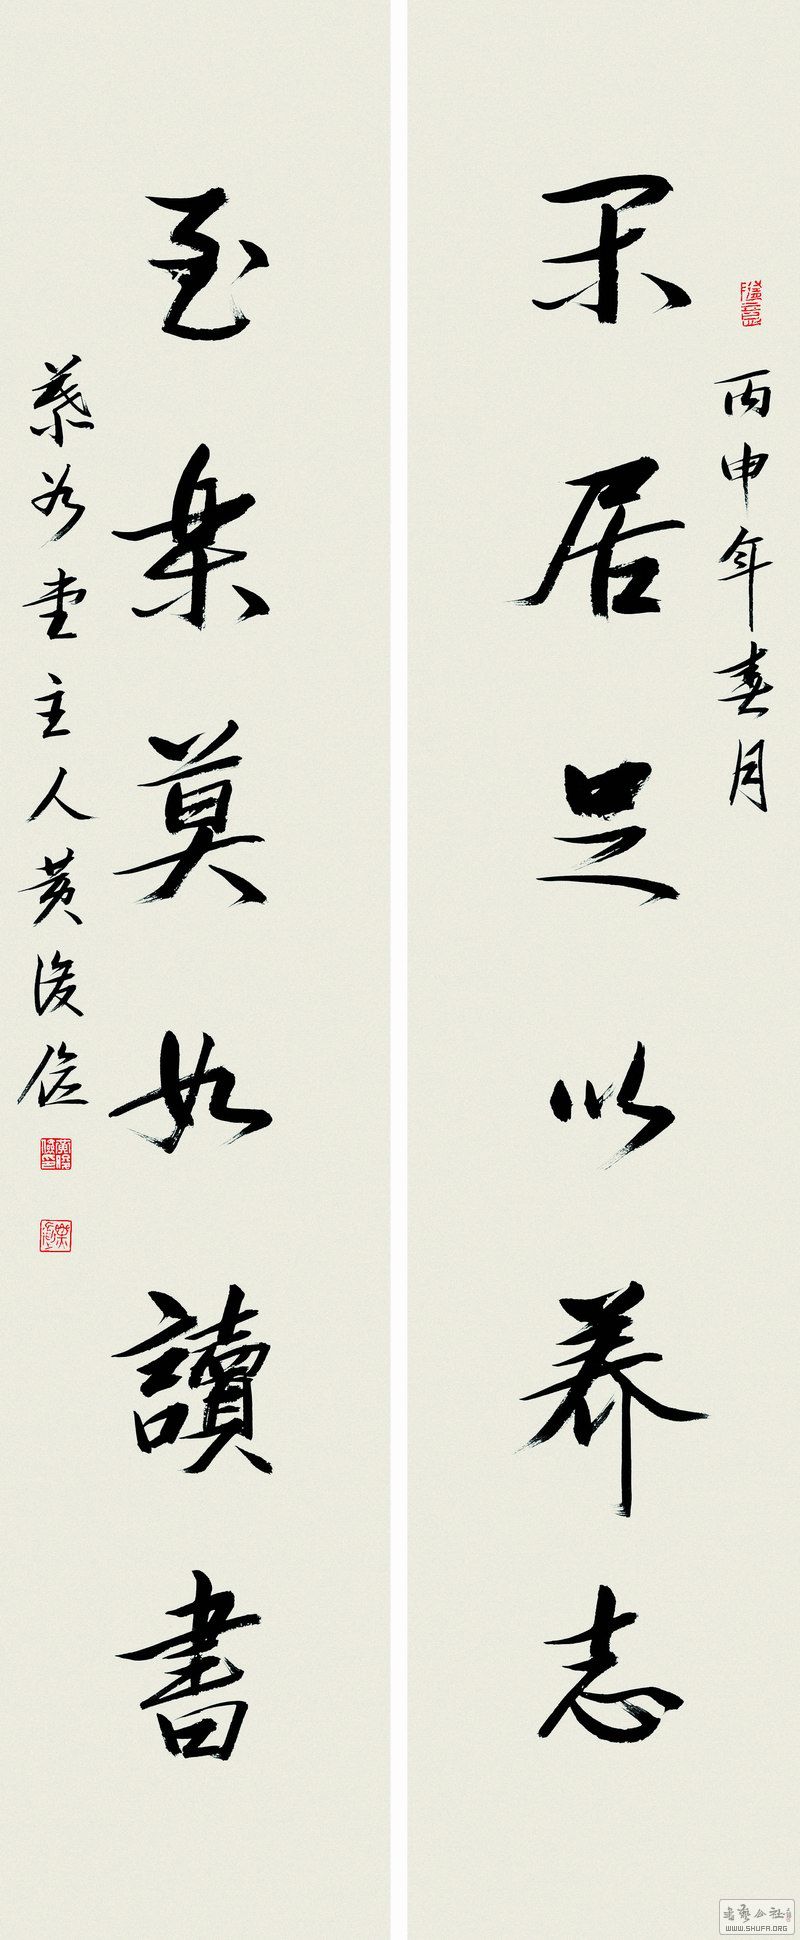 丙申年春月
闲居足以养志
至乐莫如讀書
慕谷堂主人黄俊俭
書藝公社
WWW.SHUFA.ORG